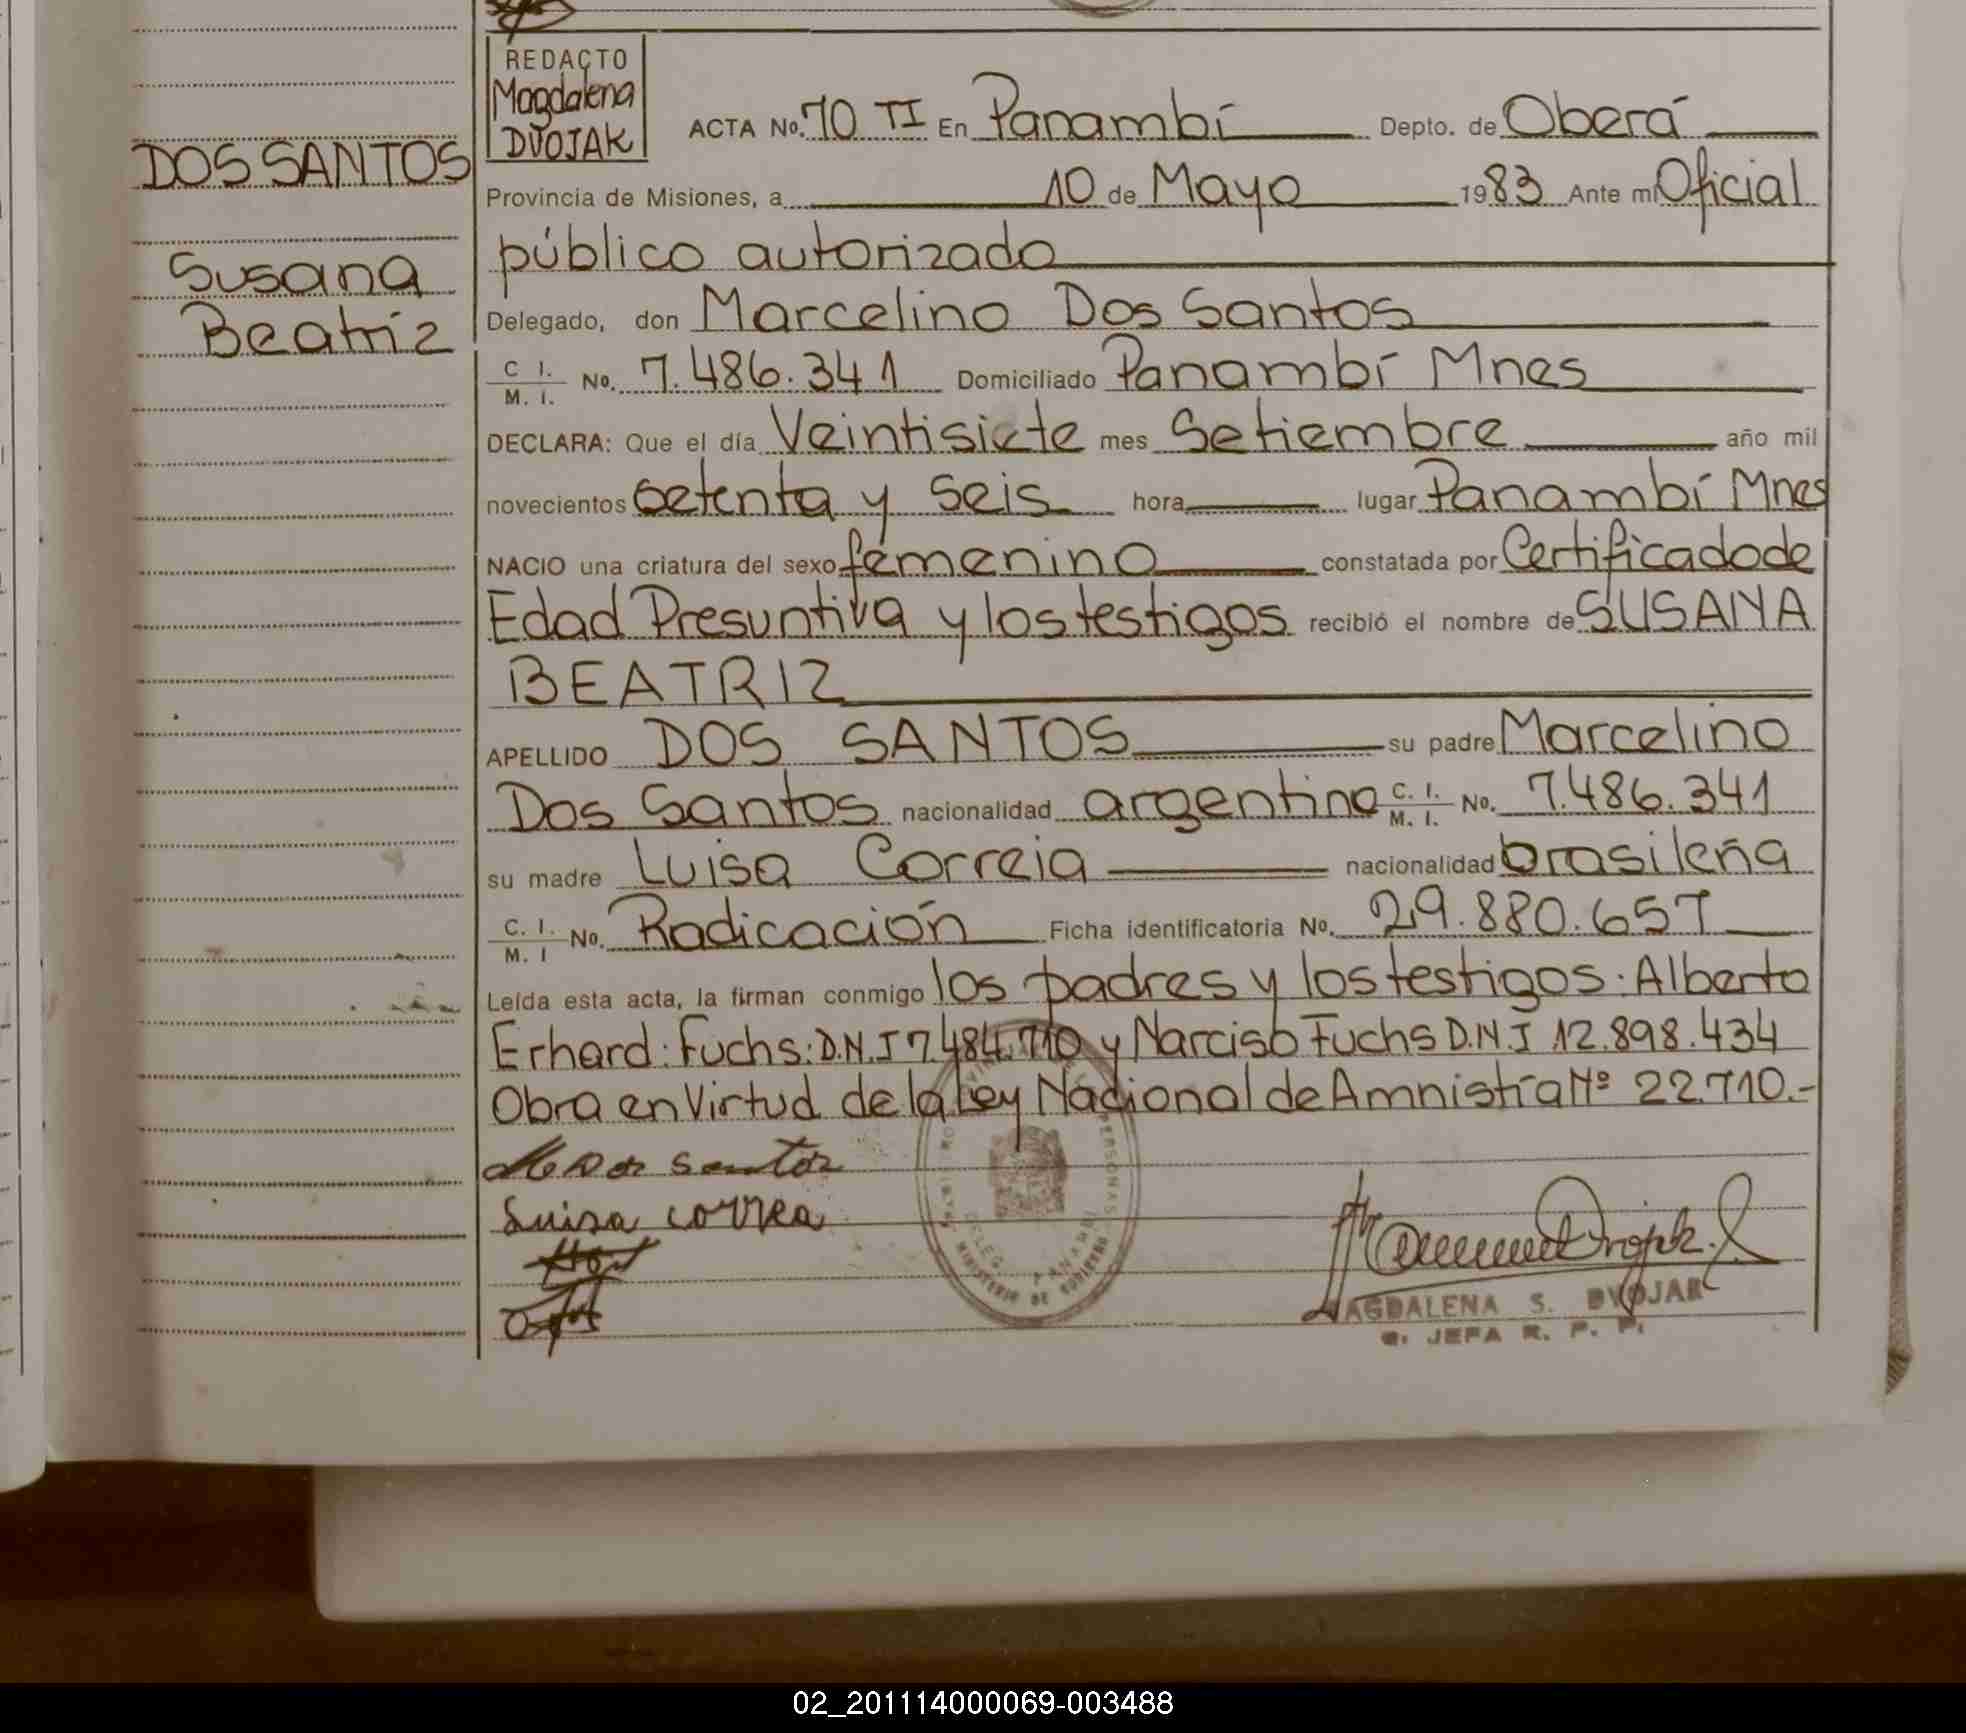 REDACTO
Magdalena
DVOJAK
ACTA No. 70 TI En Panambí Depto. de Oberá
DOS SANTOS
Provincia de Misiones, a 10 de Mayo 1983 Ante mí Oficial
público autorizado
Susana
Beatriz
Delegado, don Marcelino Dos Santos
C I. / M. I. No. 7.486.341 Domiciliado Panambí Mnes
DECLARA: Que el día Veintisiete mes Setiembre año mil
novecientos setenta y seis hora lugar Panambí Mnes
NACIO una criatura del sexo femenino constatada por Certificado de
Edad Presuntiva y los testigos recibió el nombre de SUSANA
BEATRIZ
APELLIDO DOS SANTOS su padre Marcelino
Dos Santos nacionalidad argentino C. I. / M. I. No. 7.486.341
su madre Luisa Correia nacionalidad brasileña
C. I. / M. I No. Radicación Ficha identificatoria No. 29.880.657
Leída esta acta, la firman conmigo los padres y los testigos: Alberto
Erhard: Fuchs: D.N.I 7.484.710 y Narciso Fuchs D.N.I 12.898.434
Obra en Virtud de la Ley Nacional de Amnistía Nº 22.710.-
Dos Santos
Luisa correa
MINISTERIO DE GOBIERNO
DELEG. PANAMBI
PERSONAS
MAGDALENA S. DVOJAK
JEFA R. P. P.
02_201114000069-003488